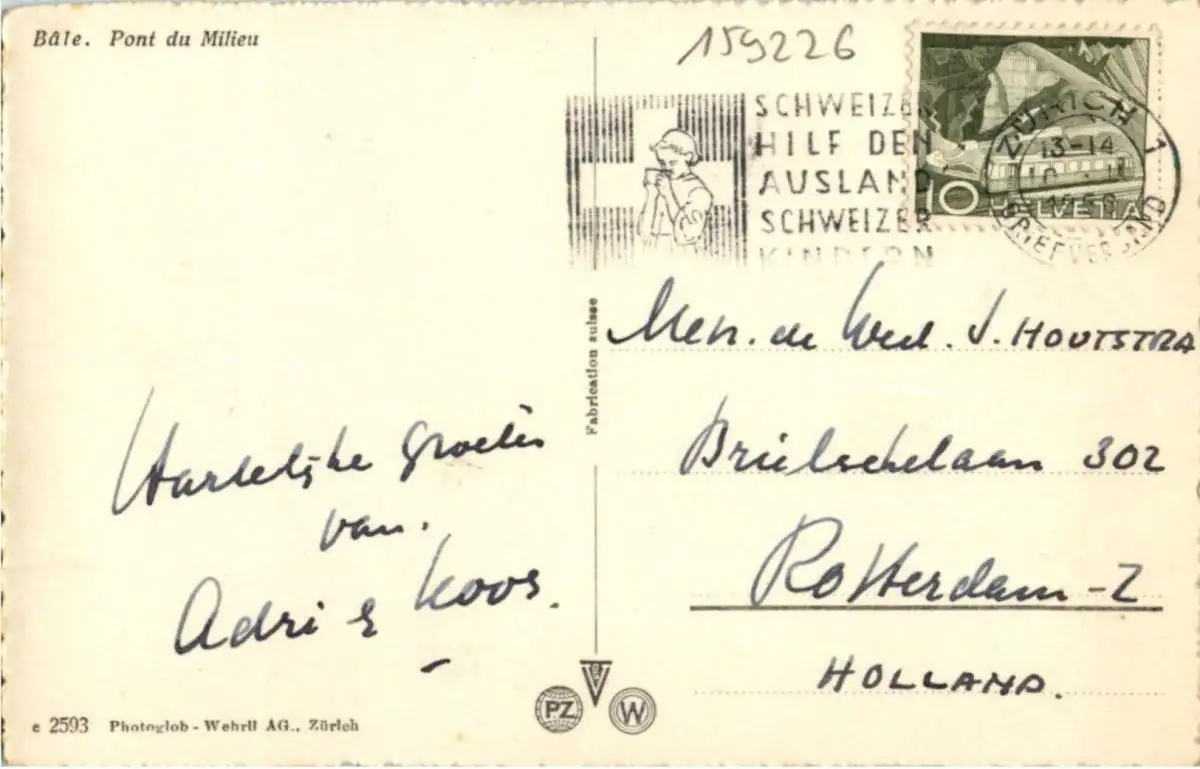 Bâle. Pont du Milieu
159226
SCHWEIZER
HILF DEN
AUSLAND
SCHWEIZER
KINDERN
ZÜRICH 1
13-14
BRIEFVERSAND
10 HELVETIA
Fabrication suisse
Mevr. de Wed. J. HOUTSTRA
Brielschelaan 302
Rotterdam-Z
HOLLAND.
Hartelijke groeten
van.
Adri & Koos.
PZ
W
e 2593 Photoglob-Wehrli AG., Zürich